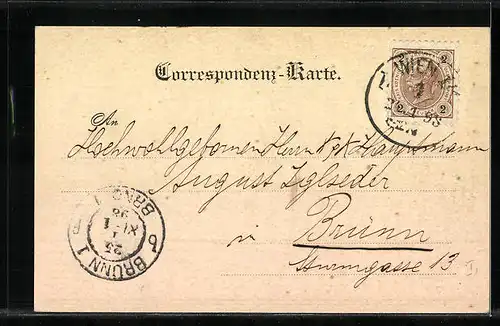 Correspondenz-Karte.
2
2 2
WIEN
An
Hochwohlgebornen Herrn K. u. K. Hauptmann
August Iglseder
in Brünn
Sturmgasse 13 I
BRÜNN 1
BRNO 1
23
XI-1
98